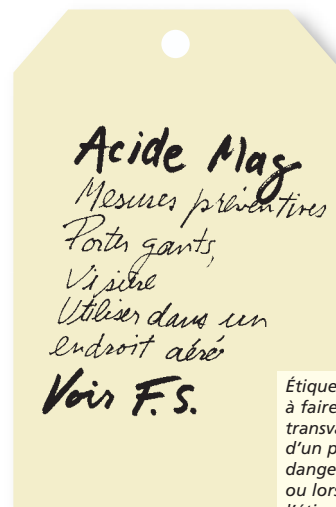 Acide Mag
Mesures préventives
Porter gants,
Visière
Utiliser dans un
endroit aéré
Voir F.S.
Étique
à faire
transva
d'un p
dange
ou lors